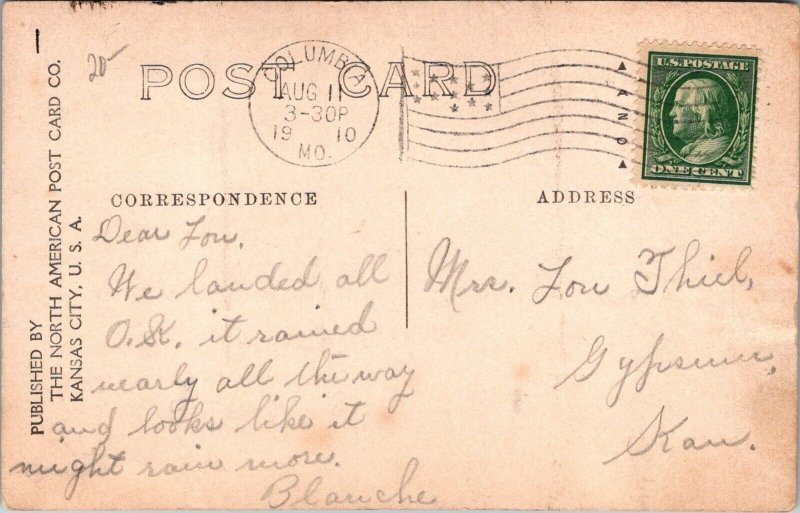 20-
POST CARD
COLUMBIA
AUG 11
3-30P
19 10
MO.
U.S. POSTAGE
ONE CENT
PUBLISHED BY
THE NORTH AMERICAN POST CARD CO.
KANSAS CITY, U. S. A.
CORRESPONDENCE
Dear Lou,
We landed all
O.K. it rained
nearly all the way
and looks like it
might rain more.
Blanche
ADDRESS
Mrs. Lou Thiel,
Gypsum,
Kan.